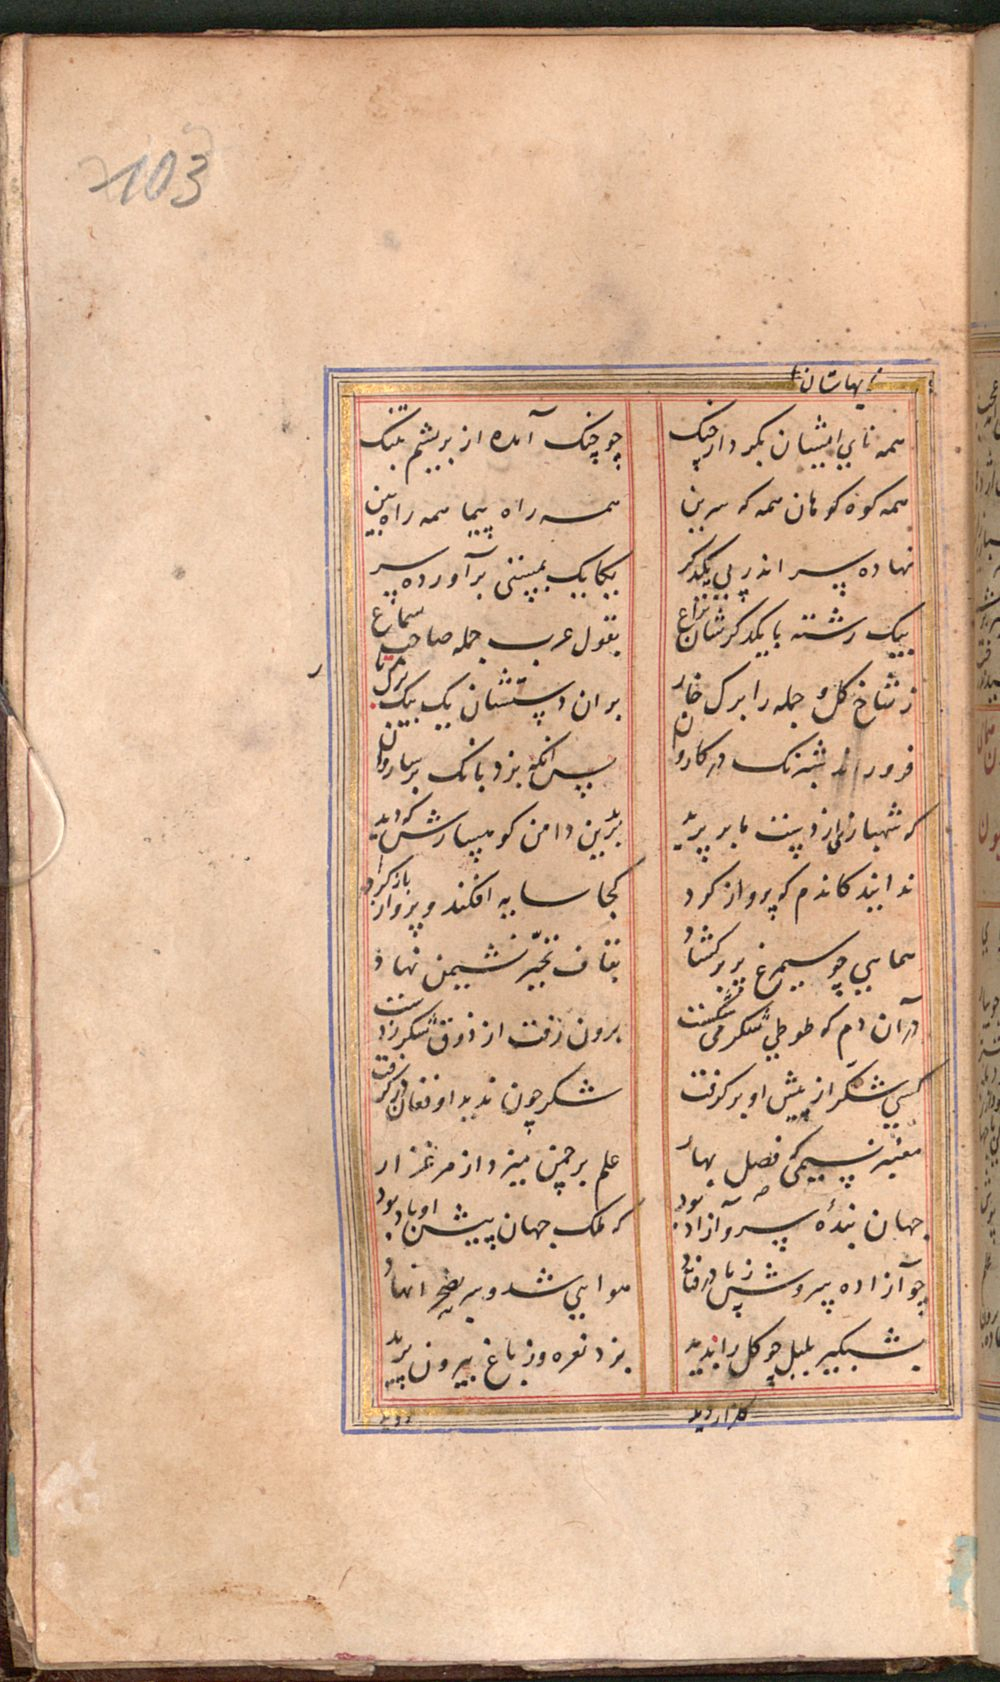 103
همه نای ایشان بکردار چنک
چو چنک آمده از بریشم بتنک
همه کوه کوهان همه که سرین
همه راه پیما همه راه بین
نهاده سر اندر پی یکدگر
یکایک بمستی برآورده سر
بیک رشته با یکدگرشان نزاع
بقول عرب جمله صاحب سماع
ز شاخ گل و جمله را برک خار
بران دستشان یک بیک
فرو راند شبرنک در کاروان
پس آنکه بزد بانک بر ساروان
که شهبازی از دست ما بر پرید
برین دامن کوهسارش که دید
ندانید کاندم که پرواز کرد
کجا سایه افکند و پر باز کرد
همایی چو سیمرغ پر برکشاد
بقاف تحیّر نشیمن نهاد
در آن دم که طوطی شکر می شکست
برون رفت از ذوق شکر ز دست
کسی شکّر از پیش او برکرفت
شکر چون ندید او فغان درکرفت
معنبر نسیمی فصل بهار
علم بر چمن میزد از مرغزار
جهان بندهٔ سرو آزاد بود
که ملک جهان پیشن او باد بود
چو آزاده سروش ز پا درفتاد
هوایی شد و سر بصحرا نهاد
بشبکیر بلبل چو کل را ندید
بزد نعره وز باغ بیرون پرید